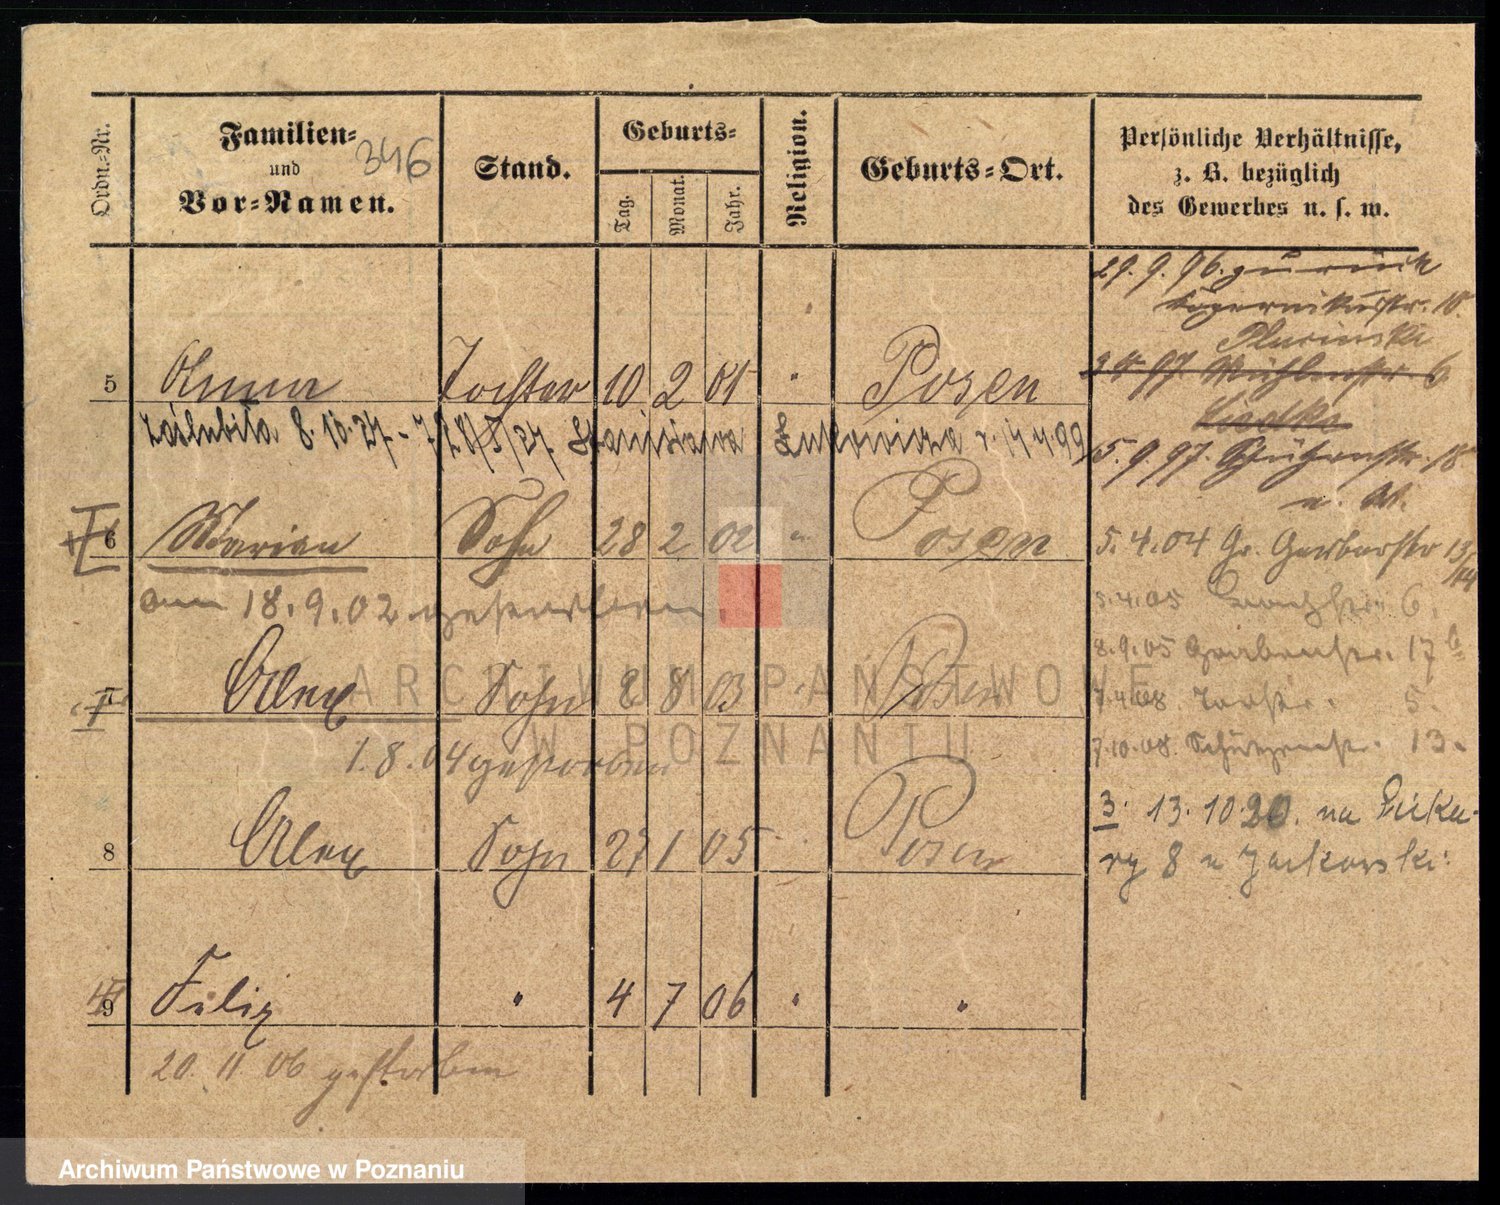 Ordn.-Nr.
Familien-
und
Vor-Namen.
346
Stand.
Geburts-
Tag.
Monat.
Jahr.
Religion.
Geburts-Ort.
Persönliche Verhältnisse,
z. B. bezüglich
des Gewerbes u. s. w.
29. 9. 96. zurück
18.
5 Anna Tochter 10 2 01 " Posen
97. Mühlenstr. 6
zaślubiła 8.10.27 - Stanisława Łukowicza
5. 9. 97. Schützenstr. 18
6 Marian Sohn 28 2 02 " Posen
5. 4. 04 Gr. Gerberstr 13/14
am 18.9.02 gestorben
5.4.05 6.
8.9.05 Grabenstr. 17
7 Alex Sohn 2 8 03 " Posen
7.4.08. Torstr. 5.
1.8.04 gestorben
7.10.08 Schützenstr. 13.
8 Alex Sohn 27 1 05 " Posen
3. 13. 10 20. na Pieka-
ry 8 u Jackowski:
9 Felix " 4 7 06 " "
20. 11 06 gestorben
ARCHIWUM PAŃSTWOWE
W POZNANIU
Archiwum Państwowe w Poznaniu